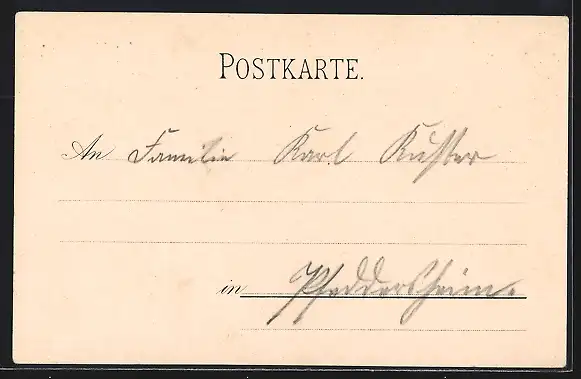 POSTKARTE.
An Familie Karl Kuster
in Pfeddersheim.